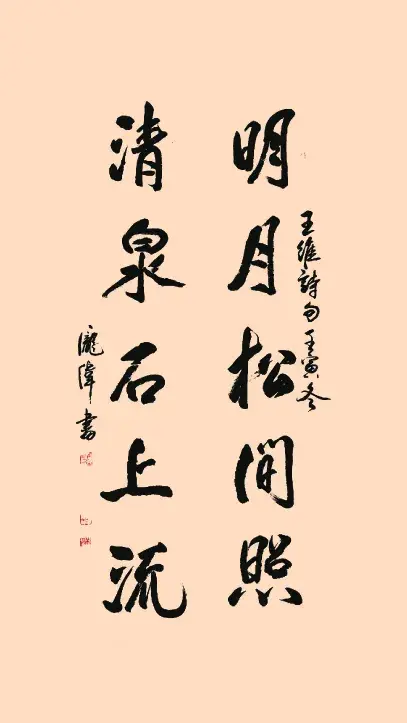 王維詩句壬寅冬
明月松間照
清泉石上流
龐偉書